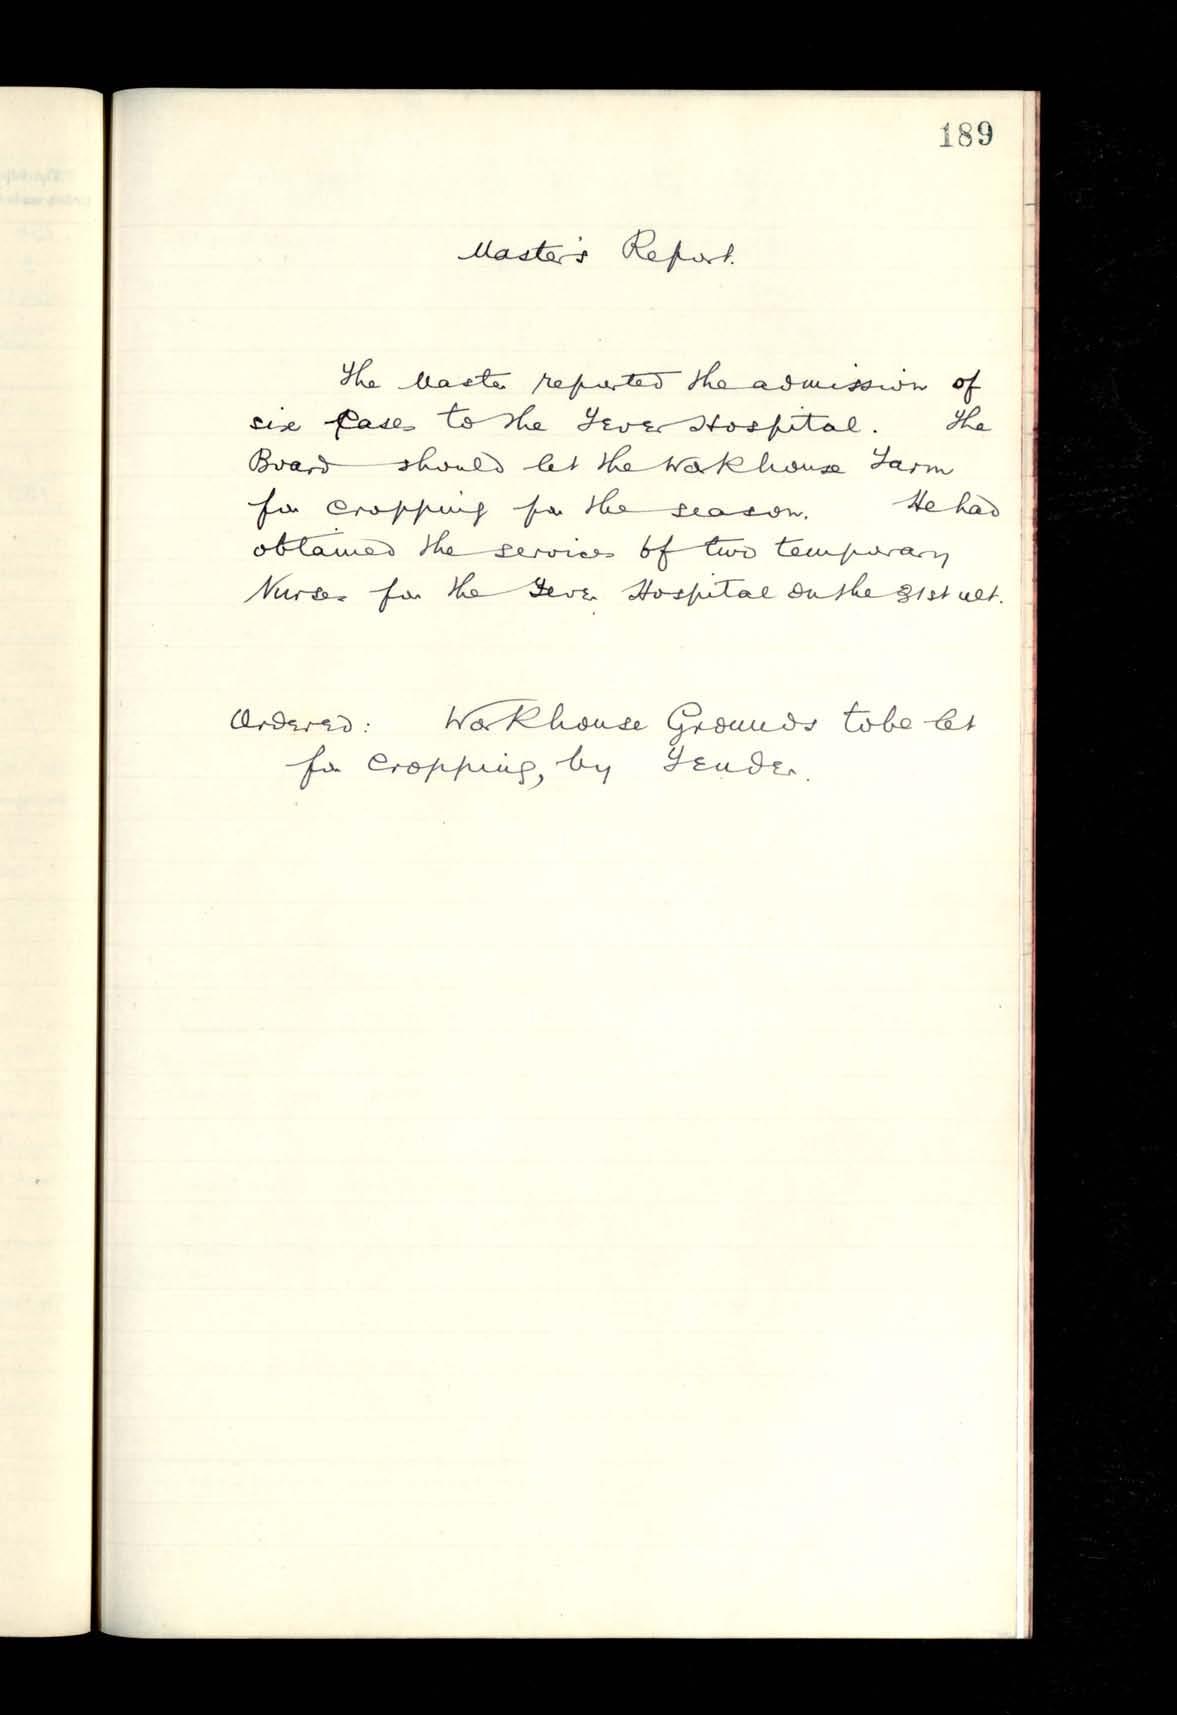 189
Master's Report.
The Master reported the admission of
six Cases to the Fever Hospital. The
Board should let the Workhouse Farm
for cropping for the season. He had
obtained the services of two temporary
Nurses for the Fever Hospital on the 31st ult.
Ordered: Workhouse Grounds to be let
for Cropping, by Tender.